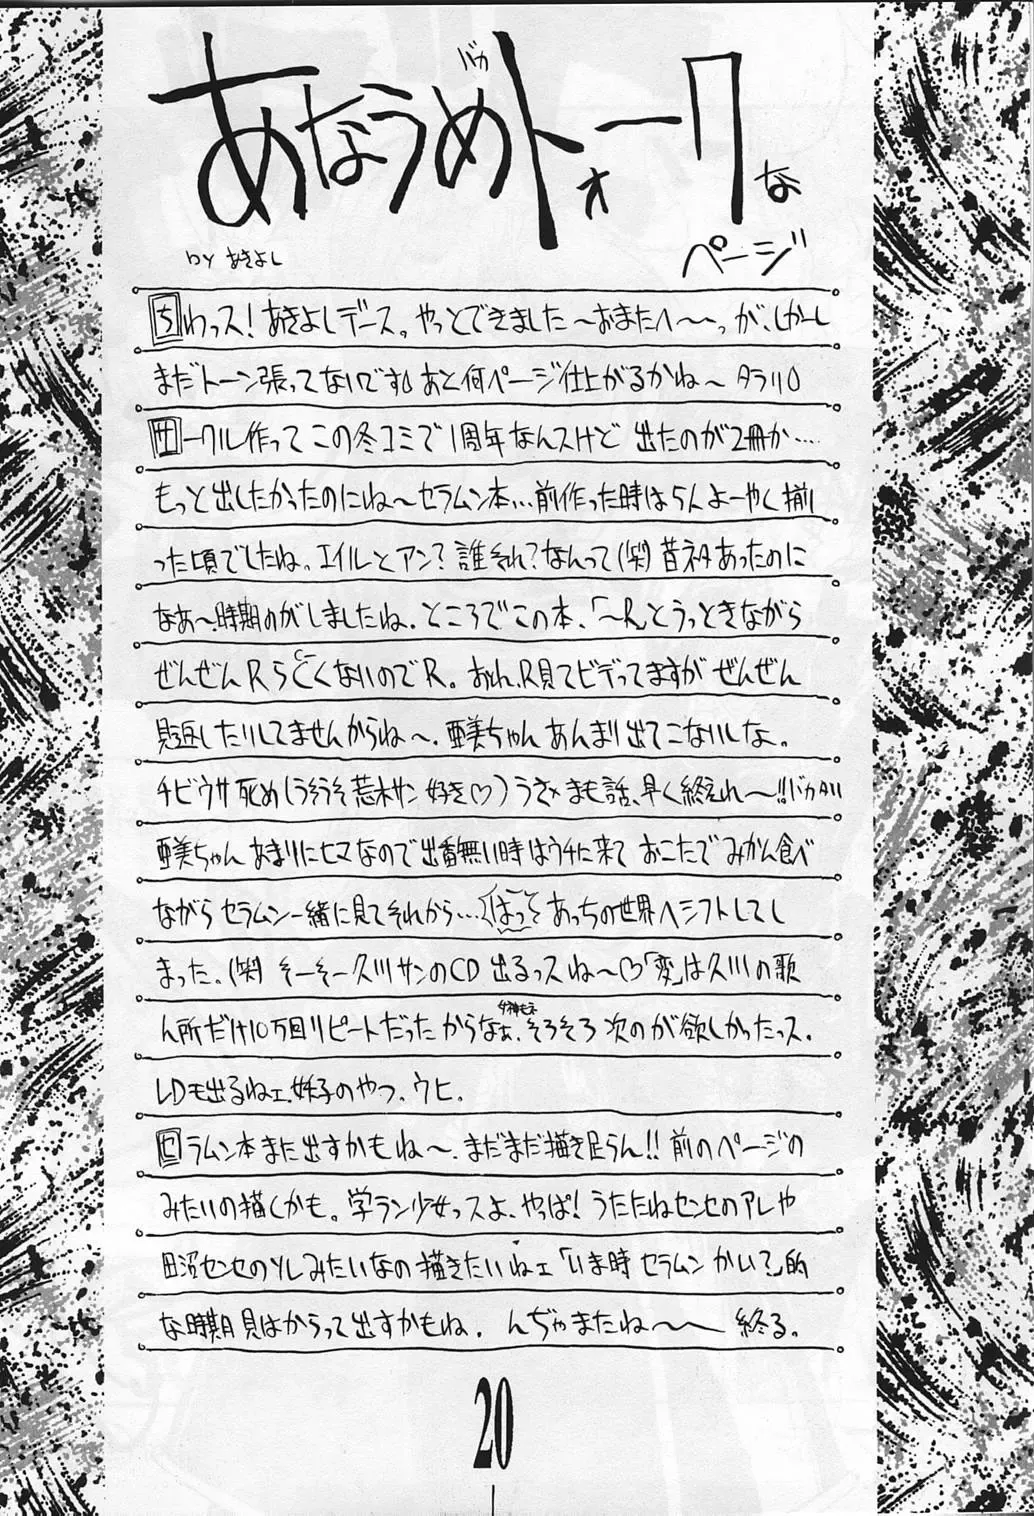 バカ
あなうめトォークな
ページ
by あきよし
ちわっス！あきよしデース。やっとできました〜おまたへ〜〜っが、しかーし
まだトーン張ってないです あと何ページ仕上がるかね〜 タラリ
サークル作って この冬コミで 1周年なんスけど 出たのが2冊か…
もっと出したかったのにね〜セラムン本…前作った時は5人よーやく揃
った頃でしたね。エイルとアン？誰それ？なんって(笑) 昔ネタあったのに
なあ〜、時期のがしましたね。ところでこの本、「〜R」とうっときながら
ぜんぜんRらしくないのでR。おれ、R見てビデってますが ぜんぜん
見返したりしてませんからね〜、亜美ちゃん あんまり出てこないしな。
チビウサ死め(うそうそ荒木サン 好き♡) うさ×まも話、早く終われ〜!!バカタリ
亜美ちゃん あまりにヒマなので出番無い時はウチに来て おこたでみかん食べ
ながら セラムン一緒に見てそれから…はっ あっちの世界へシフトしてし
まった。(笑) そーそー久川サンのCD 出るっスね〜♡「変」は久川の歌
ん所だけ10万回リピートだった からなぁ、そろそろ 次のが欲しかったっス。
LDも出るねェ、妖子のやつ。ウヒ。
セラムン本また出すかもね〜、まだまだ描き足らん!! 前のページの
みたいの描くかも。学ラン少女っスよ、やっぱ！うたたねセンセのアレや
田沼センセのソレみたいなの描きたいねェ「いま時 セラムン かいて」的
な時期 見はからって出すかもね。 んぢゃまたね〜〜 終る。
20